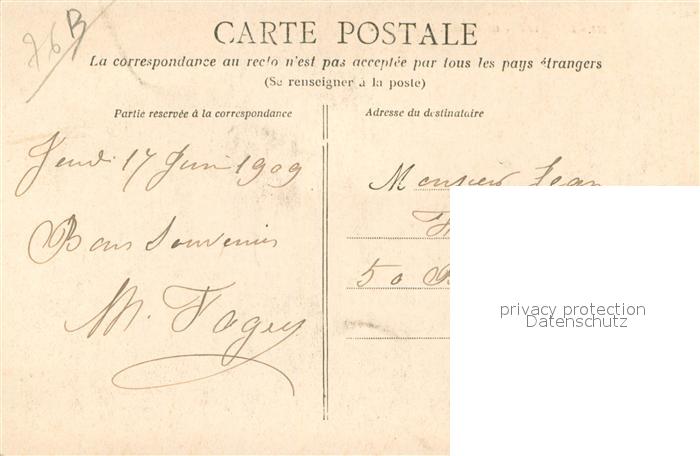 76 B
CARTE POSTALE
La correspondance au recto n'est pas acceptée par tous les pays étrangers
(Se renseigner à la poste)
Partie reservée à la correspondance
Adresse du destinataire
Jeudi 17 Juin 1909
Bons Souvenirs
M.
Monsieur Jean
50 B
privacy protection
Datenschutz